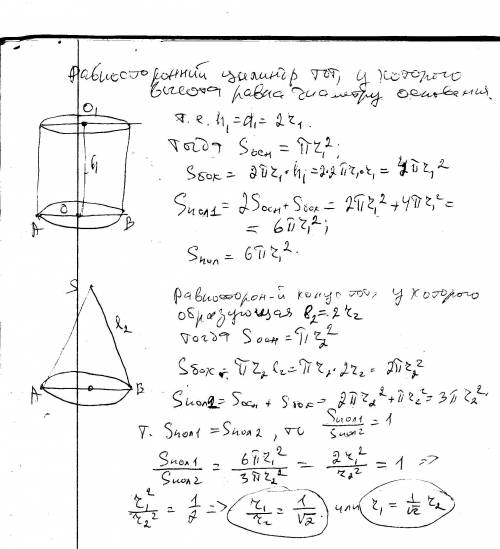 Равносторонний цилиндр тот, у которого
высота равна диаметру основания.
O₁
т.е. h₁ = d₁ = 2r₁.
тогда Sосн = πr₁²;
h
Sбок = 2πr₁·h₁ = 2·2πr₁·r₁ = 4πr₁²
O
A B
Sпол1 = 2Sосн + Sбок = 2πr₁² + 4πr₁² =
= 6πr₁²;
Sпол = 6πr₁².
S
Равносторон-й конус тот, у которого
образующая l₂ = 2r₂
l₂
тогда Sосн = πr₂²
Sбок = πr₂ l₂ = πr₂·2r₂ = 2πr₂²
A o B
Sпол2 = Sосн + Sбок = 2πr₂² + πr₂² = 3πr₂²
т. Sпол1 = Sпол2, то Sпол1/Sпол2 = 1
Sпол1/Sпол2 = 6πr₁²/3πr₂² = 2r₁²/r₂² = 1 =>
r₁²/r₂² = 1/2 => r₁/r₂ = 1/√2 или r₁ = 1/√2 r₂